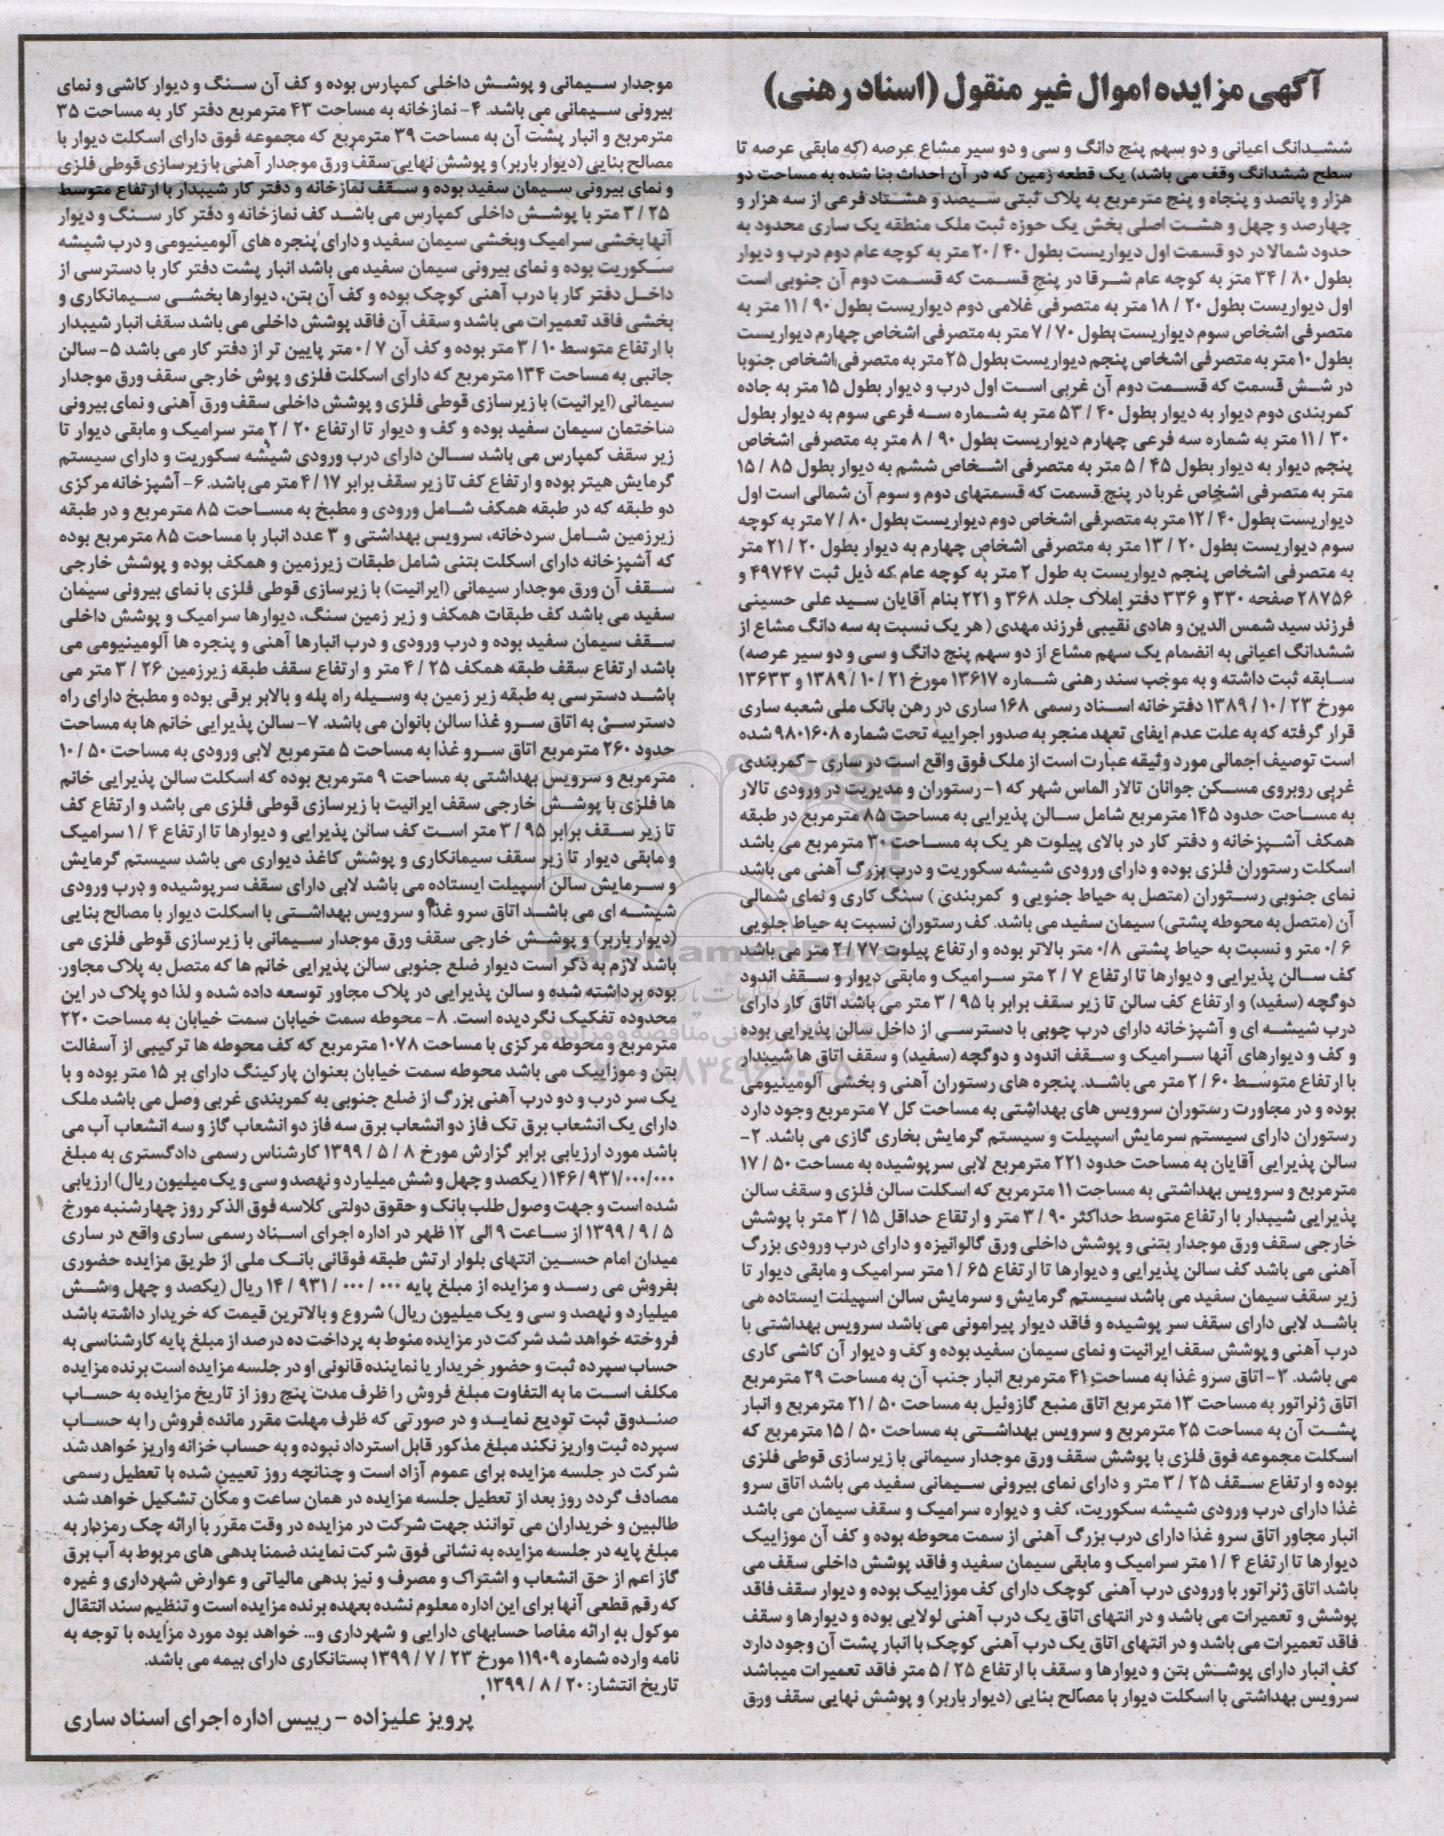 آگهی مزایده اموال غیر منقول (اسناد رهنی)
ششدانگ اعیانی و دو سهم پنج دانگ و سی و دو سیر مشاع عرصه (که مابقی عرصه تا
سطح ششدانگ وقف می باشد) یک قطعه زمین که در آن احداث بنا شده به مساحت دو
هزار و پانصد و پنجاه و پنج مترمربع به پلاک ثبتی سیصد و هشتاد فرعی از سه هزار و
چهارصد و چهل و هشت اصلی بخش یک حوزه ثبت ملک منطقه یک ساری محدود به
حدود شمالا در دو قسمت اول دیواریست بطول ۴۰ / ۲۰ متر به کوچه عام دوم درب و دیوار
بطول ۸۰ / ۳۴ متر به کوچه عام شرقا در پنج قسمت که قسمت دوم آن جنوبی است
اول دیواریست بطول ۲۰ / ۱۸ متر به متصرفی غلامی دوم دیواریست بطول ۹۰ / ۱۱ متر به
متصرفی اشخاص سوم دیواریست بطول ۷۰ / ۷ متر به متصرفی اشخاص چهارم دیواریست
بطول ۱۰ متر به متصرفی اشخاص پنجم دیواریست بطول ۲۵ متر به متصرفی اشخاص جنوبا
در شش قسمت که قسمت دوم آن غربی است اول درب و دیوار بطول ۱۵ متر به جاده
کمربندی دوم دیوار به دیوار بطول ۴۰ / ۵۳ متر به شماره سه فرعی سوم به دیوار بطول
۳۰ / ۱۱ متر به شماره سه فرعی چهارم دیواریست بطول ۹۰ / ۸ متر به متصرفی اشخاص
پنجم دیوار به دیوار بطول ۴۵ / ۵ متر به متصرفی اشخاص ششم به دیوار بطول ۸۵ / ۱۵
متر به متصرفی اشخاص غربا در پنج قسمت که قسمتهای دوم و سوم آن شمالی است اول
دیواریست بطول ۴۰ / ۱۲ متر به متصرفی اشخاص دوم دیواریست بطول ۸۰ / ۷ متر به کوچه
سوم دیواریست بطول ۲۰ / ۱۳ متر به متصرفی اشخاص چهارم به دیوار بطول ۲۰ / ۲۱ متر
به متصرفی اشخاص پنجم دیواریست به طول ۲ متر به کوچه عام که ذیل ثبت ۴۹۷۴۷ و
۲۸۷۵۶ صفحه ۳۳۰ و ۳۳۶ دفتر املاک جلد ۳۶۸ و ۲۲۱ بنام آقایان سید علی حسینی
فرزند سید شمس الدین و هادی نقیبی فرزند مهدی ( هر یک نسبت به سه دانگ مشاع از
ششدانگ اعیانی به انضمام یک سهم مشاع از دو سهم پنج دانگ و سی و دو سیر عرصه)
سابقه ثبت داشته و به موجب سند رهنی شماره ۱۳۶۱۷ مورخ ۲۱ / ۱۰ / ۱۳۸۹ و ۱۳۶۳۳
مورخ ۲۳ / ۱۰ / ۱۳۸۹ دفترخانه اسناد رسمی ۱۶۸ ساری در رهن بانک ملی شعبه ساری
قرار گرفته که به علت عدم ایفای تعهد منجر به صدور اجراییه تحت شماره ۹۸۰۱۶۰۸ شده
است توصیف اجمالی مورد وثیقه عبارت است از ملک فوق واقع است در ساری – کمربندی
غربی روبروی مسکن جوانان تالار الماس شهر که ۱- رستوران و مدیریت در ورودی تالار
به مساحت حدود ۱۴۵ مترمربع شامل سالن پذیرایی به مساحت ۸۵ مترمربع در طبقه
همکف آشپزخانه و دفتر کار در بالای پیلوت هر یک به مساحت ۳۰ مترمربع می باشد
اسکلت رستوران فلزی بوده و دارای ورودی شیشه سکوریت و درب بزرگ آهنی می باشد
نمای جنوبی رستوران (متصل به حیاط جنوبی و کمربندی ) سنگ کاری و نمای شمالی
آن (متصل به محوطه پشتی) سیمان سفید می باشد. کف رستوران نسبت به حیاط جلویی
۰/۶ متر و نسبت به حیاط پشتی ۰/۸ متر بالاتر بوده و ارتفاع پیلوت ۷۷ / ۲ متر می باشد
کف سالن پذیرایی و دیوارها تا ارتفاع ۷ / ۲ متر سرامیک و مابقی دیوار و سقف اندود
دوگچه (سفید) و ارتفاع کف سالن تا زیر سقف برابر با ۹۵ / ۳ متر می باشد اتاق کار دارای
درب شیشه ای و آشپزخانه دارای درب چوبی با دسترسی از داخل سالن پذیرایی بوده
و کف و دیوارهای آنها سرامیک و سقف اندود و دوگچه (سفید) و سقف اتاق ها شیبدار
با ارتفاع متوسط ۶۰ / ۲ متر می باشد. پنجره های رستوران آهنی و بخشی آلومینیومی
بوده و در مجاورت رستوران سرویس های بهداشتی به مساحت کل ۷ مترمربع وجود دارد
رستوران دارای سیستم سرمایش اسپیلت و سیستم گرمایش بخاری گازی می باشد. ۲-
سالن پذیرایی آقایان به مساحت حدود ۲۲۱ مترمربع لابی سرپوشیده به مساحت ۵۰ / ۱۷
مترمربع و سرویس بهداشتی به مساحت ۱۱ مترمربع که اسکلت سالن فلزی و سقف سالن
پذیرایی شیبدار با ارتفاع متوسط حداکثر ۹۰ / ۳ متر و ارتفاع حداقل ۱۵ / ۳ متر با پوشش
خارجی سقف ورق موجدار بتنی و پوشش داخلی ورق گالوانیزه و دارای درب ورودی بزرگ
آهنی می باشد کف سالن پذیرایی و دیوارها تا ارتفاع ۶۵ / ۱ متر سرامیک و مابقی دیوار تا
زیر سقف سیمان سفید می باشد سیستم گرمایش و سرمایش سالن اسپیلت ایستاده می
باشد لابی دارای سقف سر پوشیده و فاقد دیوار پیرامونی می باشد سرویس بهداشتی با
درب آهنی و پوشش سقف ایرانیت و نمای سیمان سفید بوده و کف و دیوار آن کاشی کاری
می باشد. ۳- اتاق سرو غذا به مساحت ۴۱ مترمربع انبار جنب آن به مساحت ۲۹ مترمربع
اتاق ژنراتور به مساحت ۱۳ مترمربع اتاق منبع گازوئیل به مساحت ۵۰ / ۲۱ مترمربع و انبار
پشت آن به مساحت ۲۵ مترمربع و سرویس بهداشتی به مساحت ۵۰ / ۱۵ مترمربع که
اسکلت مجموعه فوق فلزی با پوشش سقف ورق موجدار سیمانی با زیرسازی قوطی فلزی
بوده و ارتفاع سقف ۲۵ / ۳ متر و دارای نمای بیرونی سیمانی سفید می باشد اتاق سرو
غذا دارای درب ورودی شیشه سکوریت، کف و دیواره سرامیک و سقف سیمان می باشد
انبار مجاور اتاق سرو غذا دارای درب بزرگ آهنی از سمت محوطه بوده و کف آن موزاییک
دیوارها تا ارتفاع ۴ / ۱ متر سرامیک و مابقی سیمان سفید و فاقد پوشش داخلی سقف می
باشد اتاق ژنراتور با ورودی درب آهنی کوچک دارای کف موزاییک بوده و دیوار سقف فاقد
پوشش و تعمیرات می باشد و در انتهای اتاق یک درب آهنی لولایی بوده و دیوارها و سقف
فاقد تعمیرات می باشد و در انتهای اتاق یک درب آهنی کوچک با انبار پشت آن وجود دارد
کف انبار دارای پوشش بتن و دیوارها و سقف با ارتفاع ۲۵ / ۵ متر فاقد تعمیرات میباشد
سرویس بهداشتی با اسکلت دیوار با مصالح بنایی (دیوار باربر) و پوشش نهایی سقف ورق
موجدار سیمانی و پوشش داخلی کمپارس بوده و کف آن سنگ و دیوار کاشی و نمای
بیرونی سیمانی می باشد. ۴- نمازخانه به مساحت ۴۳ مترمربع دفتر کار به مساحت ۳۵
مترمربع و انبار پشت آن به مساحت ۳۹ مترمربع که مجموعه فوق دارای اسکلت دیوار با
مصالح بنایی (دیوار باربر) و پوشش نهایی سقف ورق موجدار آهنی با زیرسازی قوطی فلزی
و نمای بیرونی سیمان سفید بوده و سقف نمازخانه و دفتر کار شیبدار با ارتفاع متوسط
۲۵ / ۳ متر با پوشش داخلی کمپارس می باشد کف نمازخانه و دفتر کار سنگ و دیوار
آنها بخشی سرامیک وبخشی سیمان سفید و دارای پنجره های آلومینیومی و درب شیشه
سکوریت بوده و نمای بیرونی سیمان سفید می باشد انبار پشت دفتر کار با دسترسی از
داخل دفتر کار با درب آهنی کوچک بوده و کف آن بتن، دیوارها بخشی سیمانکاری و
بخشی فاقد تعمیرات می باشد و سقف آن فاقد پوشش داخلی می باشد سقف انبار شیبدار
با ارتفاع متوسط ۱۰ / ۳ متر بوده و کف آن ۰/۷ متر پایین تر از دفتر کار می باشد ۵- سالن
جانبی به مساحت ۱۳۴ مترمربع که دارای اسکلت فلزی و پوش خارجی سقف ورق موجدار
سیمانی (ایرانیت) با زیرسازی قوطی فلزی و پوشش داخلی سقف ورق آهنی و نمای بیرونی
ساختمان سیمان سفید بوده و کف و دیوار تا ارتفاع ۲۰ / ۲ متر سرامیک و مابقی دیوار تا
زیر سقف کمپارس می باشد سالن دارای درب ورودی شیشه سکوریت و دارای سیستم
گرمایش هیتر بوده و ارتفاع کف تا زیر سقف برابر ۱۷ / ۴ متر می باشد. ۶- آشپزخانه مرکزی
دو طبقه که در طبقه همکف شامل ورودی و مطبخ به مساحت ۸۵ مترمربع و در طبقه
زیرزمین شامل سردخانه، سرویس بهداشتی و ۳ عدد انبار با مساحت ۸۵ مترمربع بوده
که آشپزخانه دارای اسکلت بتنی شامل طبقات زیرزمین و همکف بوده و پوشش خارجی
سقف آن ورق موجدار سیمانی (ایرانیت) با زیرسازی قوطی فلزی با نمای بیرونی سیمان
سفید می باشد کف طبقات همکف و زیر زمین سنگ، دیوارها سرامیک و پوشش داخلی
سقف سیمان سفید بوده و درب ورودی و درب انبارها آهنی و پنجره ها آلومینیومی می
باشد ارتفاع سقف طبقه همکف ۲۵ / ۴ متر و ارتفاع سقف طبقه زیرزمین ۲۶ / ۳ متر می
باشد دسترسی به طبقه زیر زمین به وسیله راه پله و بالابر برقی بوده و مطبخ دارای راه
دسترسی به اتاق سرو غذا سالن بانوان می باشد. ۷- سالن پذیرایی خانم ها به مساحت
حدود ۲۶۰ مترمربع اتاق سرو غذا به مساحت ۵ مترمربع لابی ورودی به مساحت ۵۰ / ۱۰
مترمربع و سرویس بهداشتی به مساحت ۹ مترمربع بوده که اسکلت سالن پذیرایی خانم
ها فلزی با پوشش خارجی سقف ایرانیت با زیرسازی قوطی فلزی می باشد و ارتفاع کف
تا زیر سقف برابر ۹۵ / ۳ متر است کف سالن پذیرایی و دیوارها تا ارتفاع ۴ / ۱ سرامیک
و مابقی دیوار تا زیر سقف سیمانکاری و پوشش کاغذ دیواری می باشد سیستم گرمایش
و سرمایش سالن اسپیلت ایستاده می باشد لابی دارای سقف سرپوشیده و درب ورودی
شیشه ای می باشد اتاق سرو غذا و سرویس بهداشتی با اسکلت دیوار با مصالح بنایی
(دیوار باربر) و پوشش خارجی سقف ورق موجدار سیمانی با زیرسازی قوطی فلزی می
باشد لازم به ذکر است دیوار ضلع جنوبی سالن پذیرایی خانم ها که متصل به پلاک مجاور
بوده برداشته شده و سالن پذیرایی در پلاک مجاور توسعه داده شده و لذا دو پلاک در این
محدوده تفکیک نگردیده است. ۸- محوطه سمت خیابان سمت خیابان به مساحت ۲۲۰
مترمربع و محوطه مرکزی با مساحت ۱۰۷۸ مترمربع که کف محوطه ها ترکیبی از آسفالت
بتن و موزاییک می باشد محوطه سمت خیابان بعنوان پارکینگ دارای بر ۱۵ متر بوده و با
یک سر درب و دو درب آهنی بزرگ از ضلع جنوبی به کمربندی غربی وصل می باشد ملک
دارای یک انشعاب برق تک فاز دو انشعاب برق سه فاز دو انشعاب گاز و سه انشعاب آب می
باشد مورد ارزیابی برابر گزارش مورخ ۸ / ۵ / ۱۳۹۹ کارشناس رسمی دادگستری به مبلغ
۱۴۶/۹۳۱/۰۰۰/۰۰۰ ( یکصد و چهل و شش میلیارد و نهصد و سی و یک میلیون ریال) ارزیابی
شده است و جهت وصول طلب بانک و حقوق دولتی کلاسه فوق الذکر روز چهارشنبه مورخ
۵ / ۹ / ۱۳۹۹ از ساعت ۹ الی ۱۲ ظهر در اداره اجرای اسناد رسمی ساری واقع در ساری
میدان امام حسین انتهای بلوار ارتش طبقه فوقانی بانک ملی از طریق مزایده حضوری
بفروش می رسد و مزایده از مبلغ پایه ۰۰۰ / ۰۰۰ / ۹۳۱ / ۱۴ ریال (یکصد و چهل و شش
میلیارد و نهصد و سی و یک میلیون ریال) شروع و بالاترین قیمت که خریدار داشته باشد
فروخته خواهد شد شرکت در مزایده منوط به پرداخت ده درصد از مبلغ پایه کارشناسی به
حساب سپرده ثبت و حضور خریدار یا نماینده قانونی او در جلسه مزایده است برنده مزایده
مکلف است ما به التفاوت مبلغ فروش را ظرف مدت پنج روز از تاریخ مزایده به حساب
صندوق ثبت تودیع نماید و در صورتی که ظرف مهلت مقرر مانده فروش را به حساب
سپرده ثبت واریز نکند مبلغ مذکور قابل استرداد نبوده و به حساب خزانه واریز خواهد شد
شرکت در جلسه مزایده برای عموم آزاد است و چنانچه روز تعیین شده با تعطیل رسمی
مصادف گردد روز بعد از تعطیل جلسه مزایده در همان ساعت و مکان تشکیل خواهد شد
طالبین و خریداران می توانند جهت شرکت در مزایده در وقت مقرر با ارائه چک رمزدار به
مبلغ پایه در جلسه مزایده به نشانی فوق شرکت نمایند ضمنا بدهی های مربوط به آب برق
گاز اعم از حق انشعاب و اشتراک و مصرف و نیز بدهی مالیاتی و عوارض شهرداری و غیره
که رقم قطعی آنها برای این اداره معلوم نشده بعهده برنده مزایده است و تنظیم سند انتقال
موکول به ارائه مفاصا حسابهای دارایی و شهرداری و... خواهد بود مورد مزایده با توجه به
نامه وارده شماره ۱۱۹۰۹ مورخ ۲۳ / ۷ / ۱۳۹۹ بستانکاری دارای بیمه می باشد.
تاریخ انتشار: ۲۰ / ۸ / ۱۳۹۹
پرویز علیزاده – رییس اداره اجرای اسناد ساری
ParsNamadData